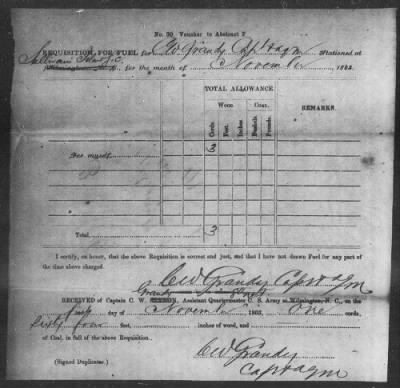 No. 30 Voucher to Abstract F
REQUISITION FOR FUEL for CW Grandy Capt & aqm Stationed at
, for the month of November 186
TOTAL ALLOWANCE
WOOD. COAL. REMARKS.
Cords. Feet. Inches. Bushels. Pounds.
For myself 3
Total, 3
I certify, on honor, that the above Requisition is correct and just, and that I have not drawn Fuel for any part of
the time above charged.
CW Grandy Capt & aqm
Grandy
RECEIVED of Captain C. W. Assistant Quartermaster C. S. Army at Wilmington, N. C., on the
day of November 1863, One cords,
Sixty four feet, inches of wood, and
of Coal, in full of the above Requisition.
CW Grandy
Capt & aqm
(Signed Duplicates.)